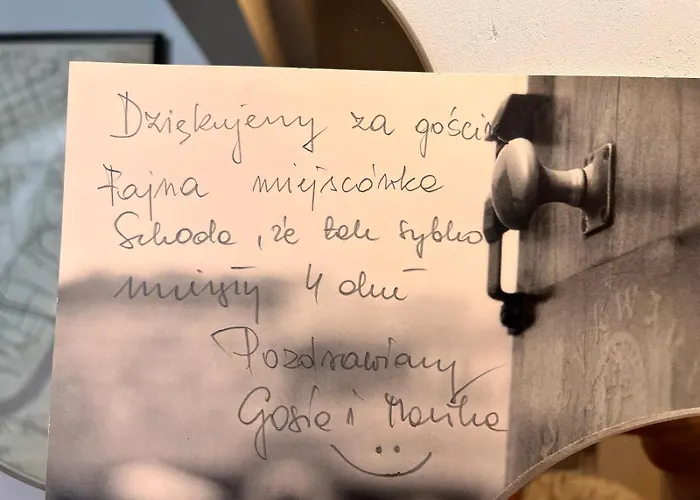 Dziękujemy za gościn
Fajna miejscówka
Szkoda, że tak sybko
minęły 4 dni
Pozdrawiamy
Gosia i Monika